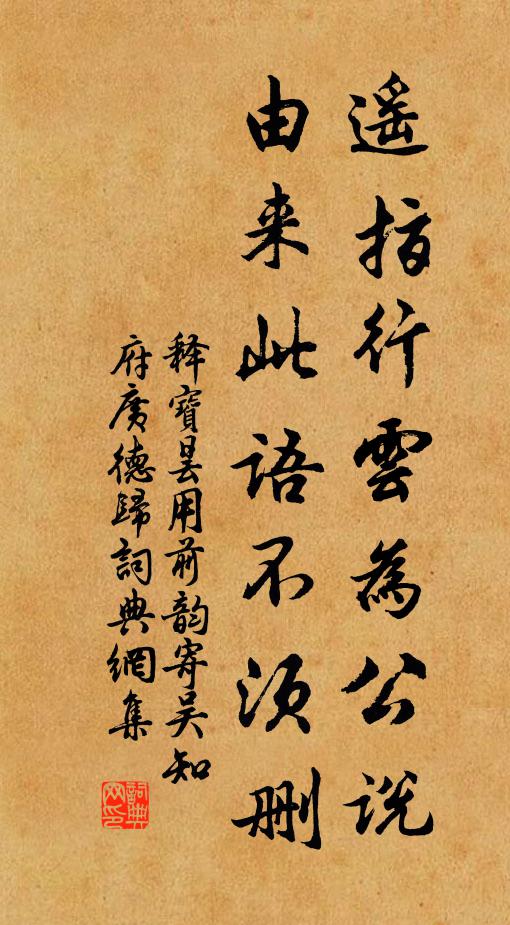 遥指行雲為公説
由来此語不須刪
释寶曇用前韵寄吴知
府廣德歸詞典網集
詞典
网印